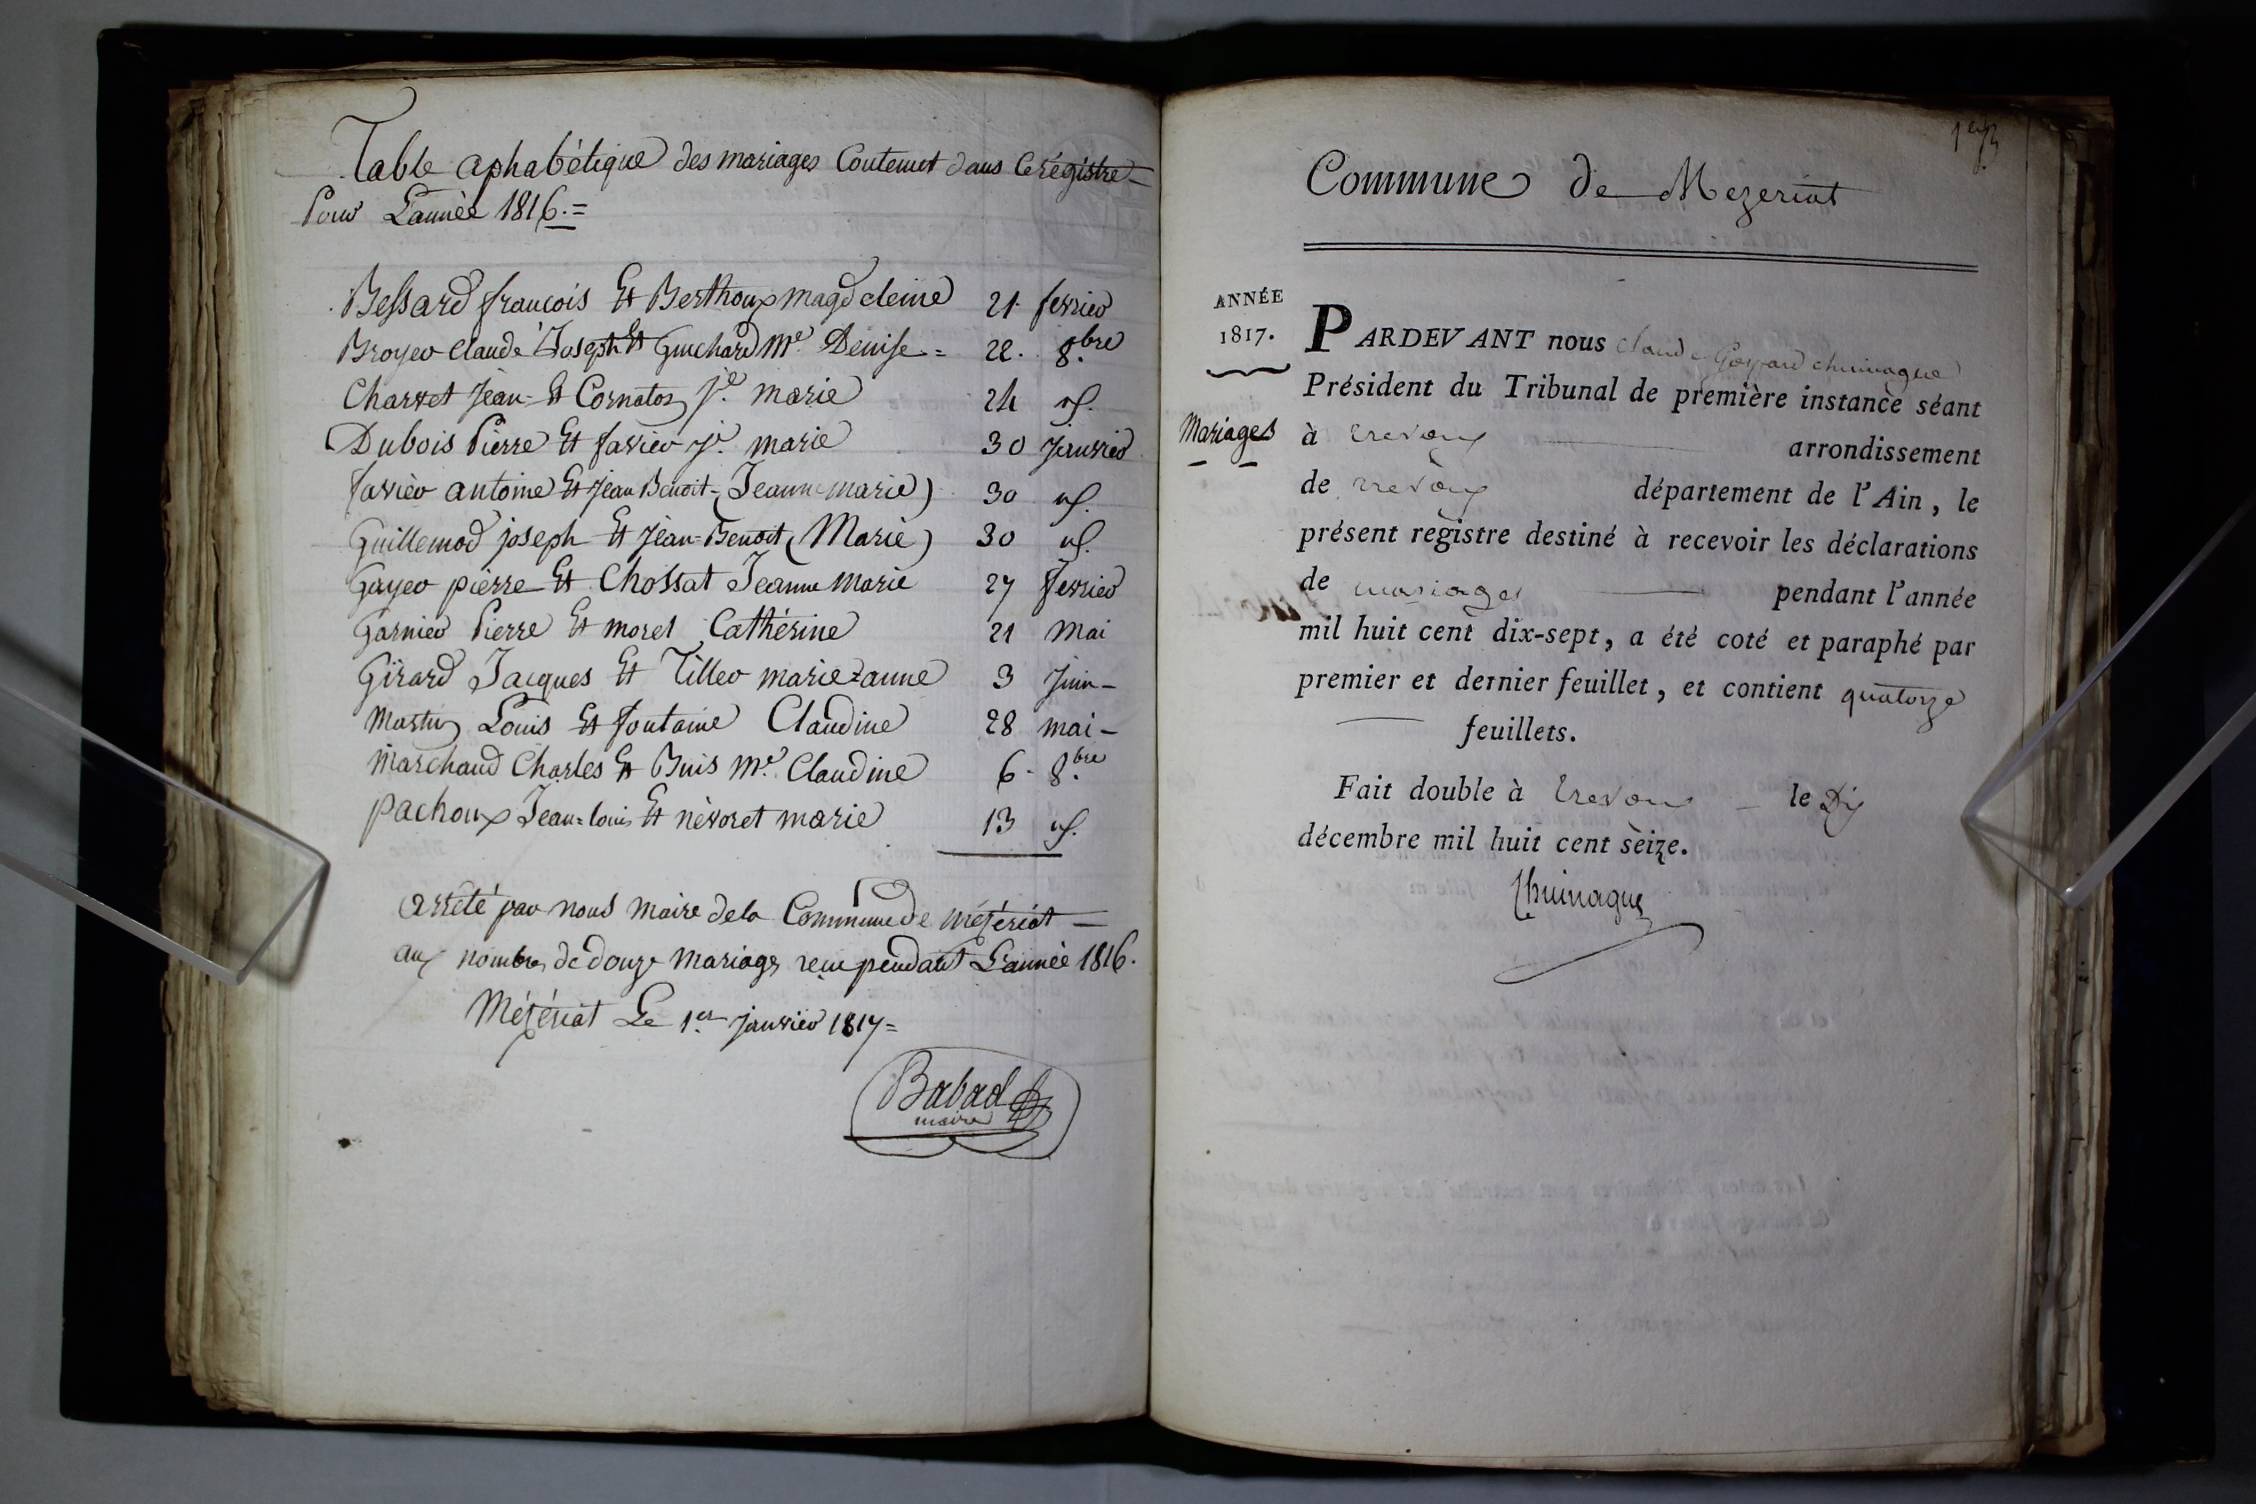 Table aphabétique des mariages Contenut dans Ce régistre
Pour L'année 1816.=
Bessard françois Et Berthoux magdeleine 21 fevrier
Broyer Claude Joseph Et Guichard Me. Denise = 22. 8.bre
Charvet Jean Et Cornaton Je. marie 24 id.
Dubois Pierre Et favier Je. marie 30 Janvier
favier antoine Et Jean Benoit (Jeanne marie) 30 id.
Guillemod joseph Et Jean=Benoit (Marie) 30 id.
Gayer pierre Et Chossat Jeanne marie 27 fevrier
Garnier Pierre Et morel Cathérine 21 Mai
Girard Jacques Et Tiller marie zanne 3 Juin-
Martin Louis Et fontaine Claudine 28 mai-
Marchand Charles Et Buis Me. Claudine 6- 8.bre
Pachoux Jean=louis Et névoret marie 13 id.
arrêté par nous Maire de la Commune de Mézériat
aux nombre de douze Mariages reçu pendant L'année 1816.
Mézériat Le 1er. janvier 1817=
Babad
maire
1er
Commune de Mezeriat
ANNÉE
1817.
Mariages
PARDEVANT nous Claude Gaspard chuinague
Président du Tribunal de première instance séant
à trevoux arrondissement
de trevoux département de l'Ain, le
présent registre destiné à recevoir les déclarations
de mariages pendant l'année
mil huit cent dix-sept, a été coté et paraphé par
premier et dernier feuillet, et contient quatorze
feuillets.
Fait double à trevoux le Dix
décembre mil huit cent seize.
Chuinague